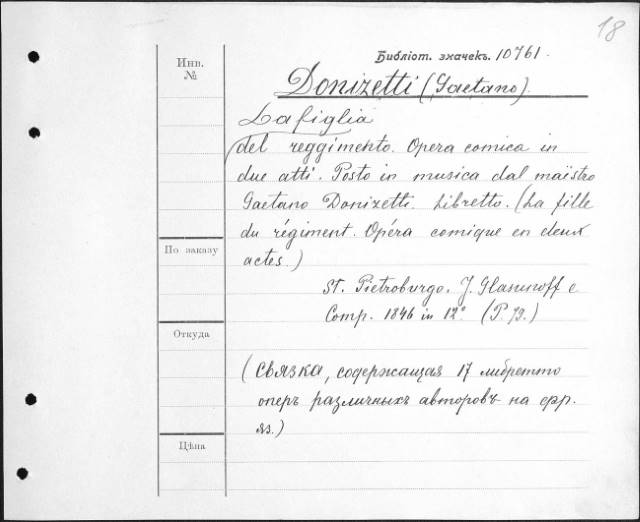 18
Инв.
№
Библіот. значекъ. 10761.
Donizetti (Gaetano).
La figlia
del reggimento. Opera comica in
due atti. Posto in musica dal maïstro
Gaetano Donizetti. Libretto. (La fille
du régiment. Opéra comique en deux
actes.)
По заказу
St. Pietroburgo. J. Glasunoff e
Comp. 1846 in 12º (P. 79.)
Откуда
(Связка, содержащая 17 либретто
оперъ различныхъ авторовъ на фр.
яз.)
Цѣна